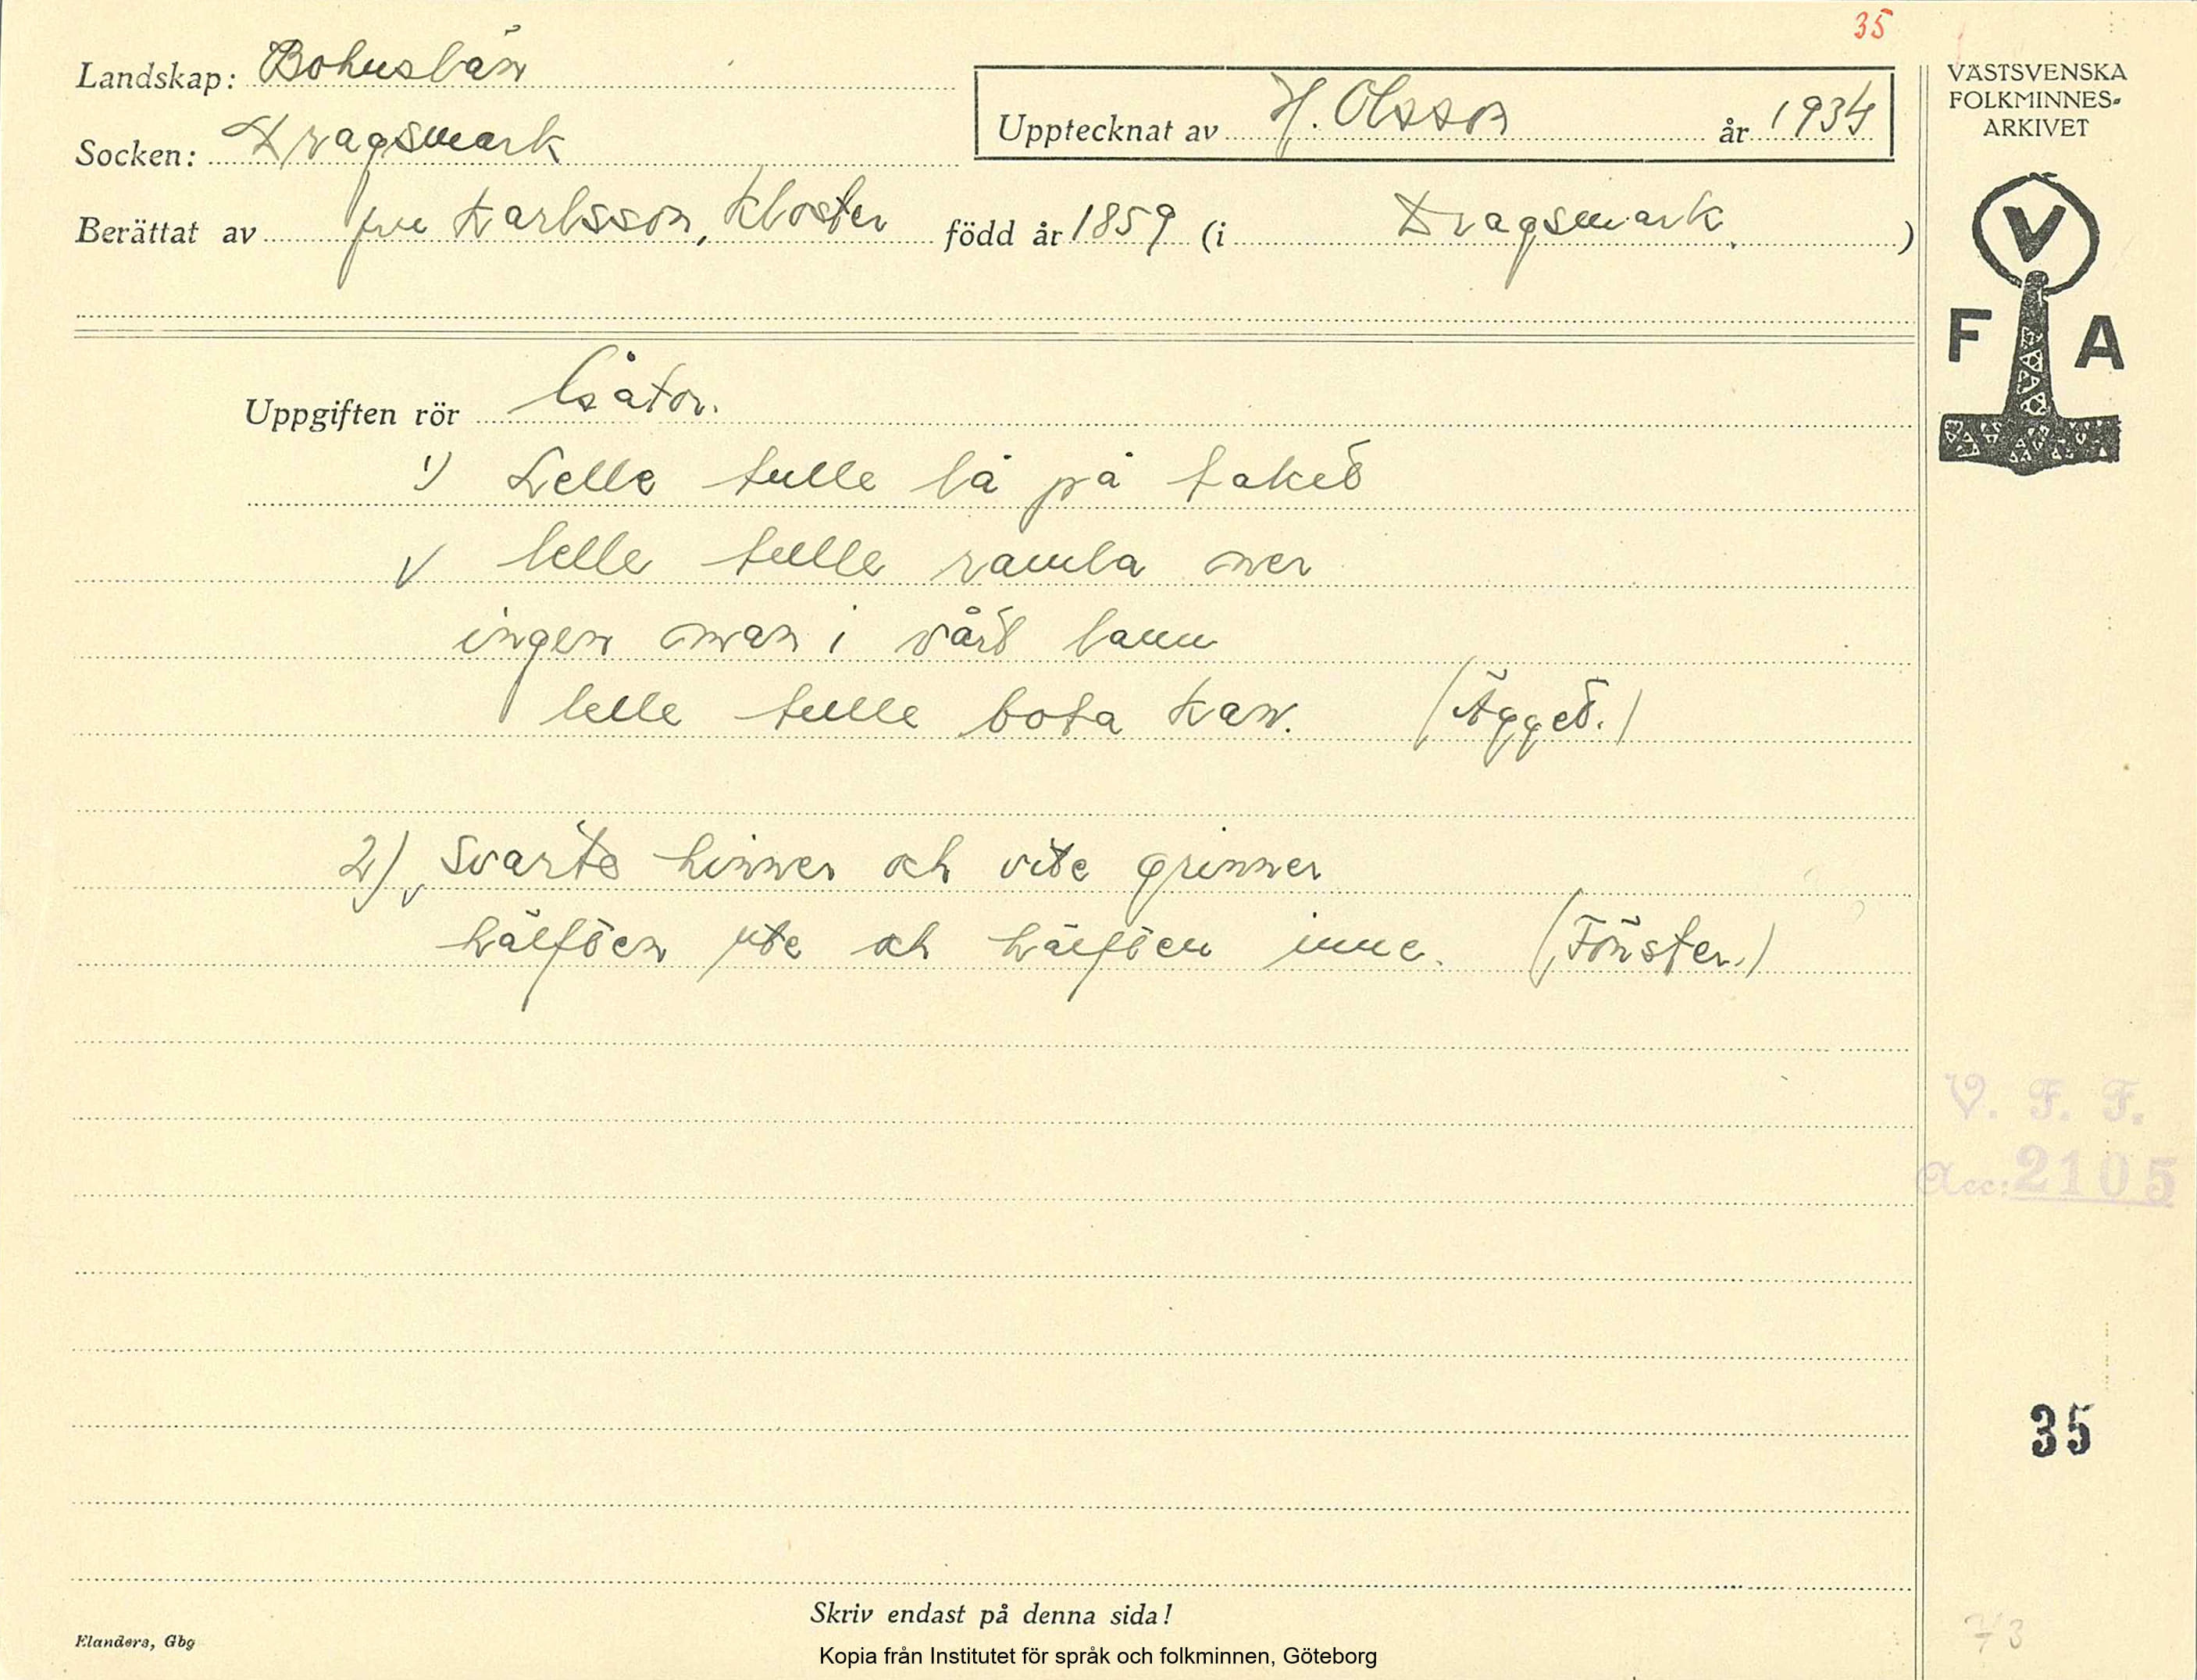 35
Landskap: Bohuslän
Socken: Dragsmark
Upptecknat av H. Olsson år 1934
Berättat av fru Karlsson, Kloster född år 1859 (i Dragsmark.)
VÄSTSVENSKA
FOLKMINNES-
ARKIVET
V
F A
Uppgiften rör Gåtor.
1) Lelle tulle lå på taket
lelle tulle ramla ner
ingen man i vårt lann
lelle tulle bota kan. (Ägget.)
2) Svarte hinner och vite grinner
hälften ute och hälften inne. (Fönster.)
V. F. F.
Acc: 2105
35
Skriv endast på denna sida!
Elanders, Gbg
73
Kopia från Institutet för språk och folkminnen, Göteborg